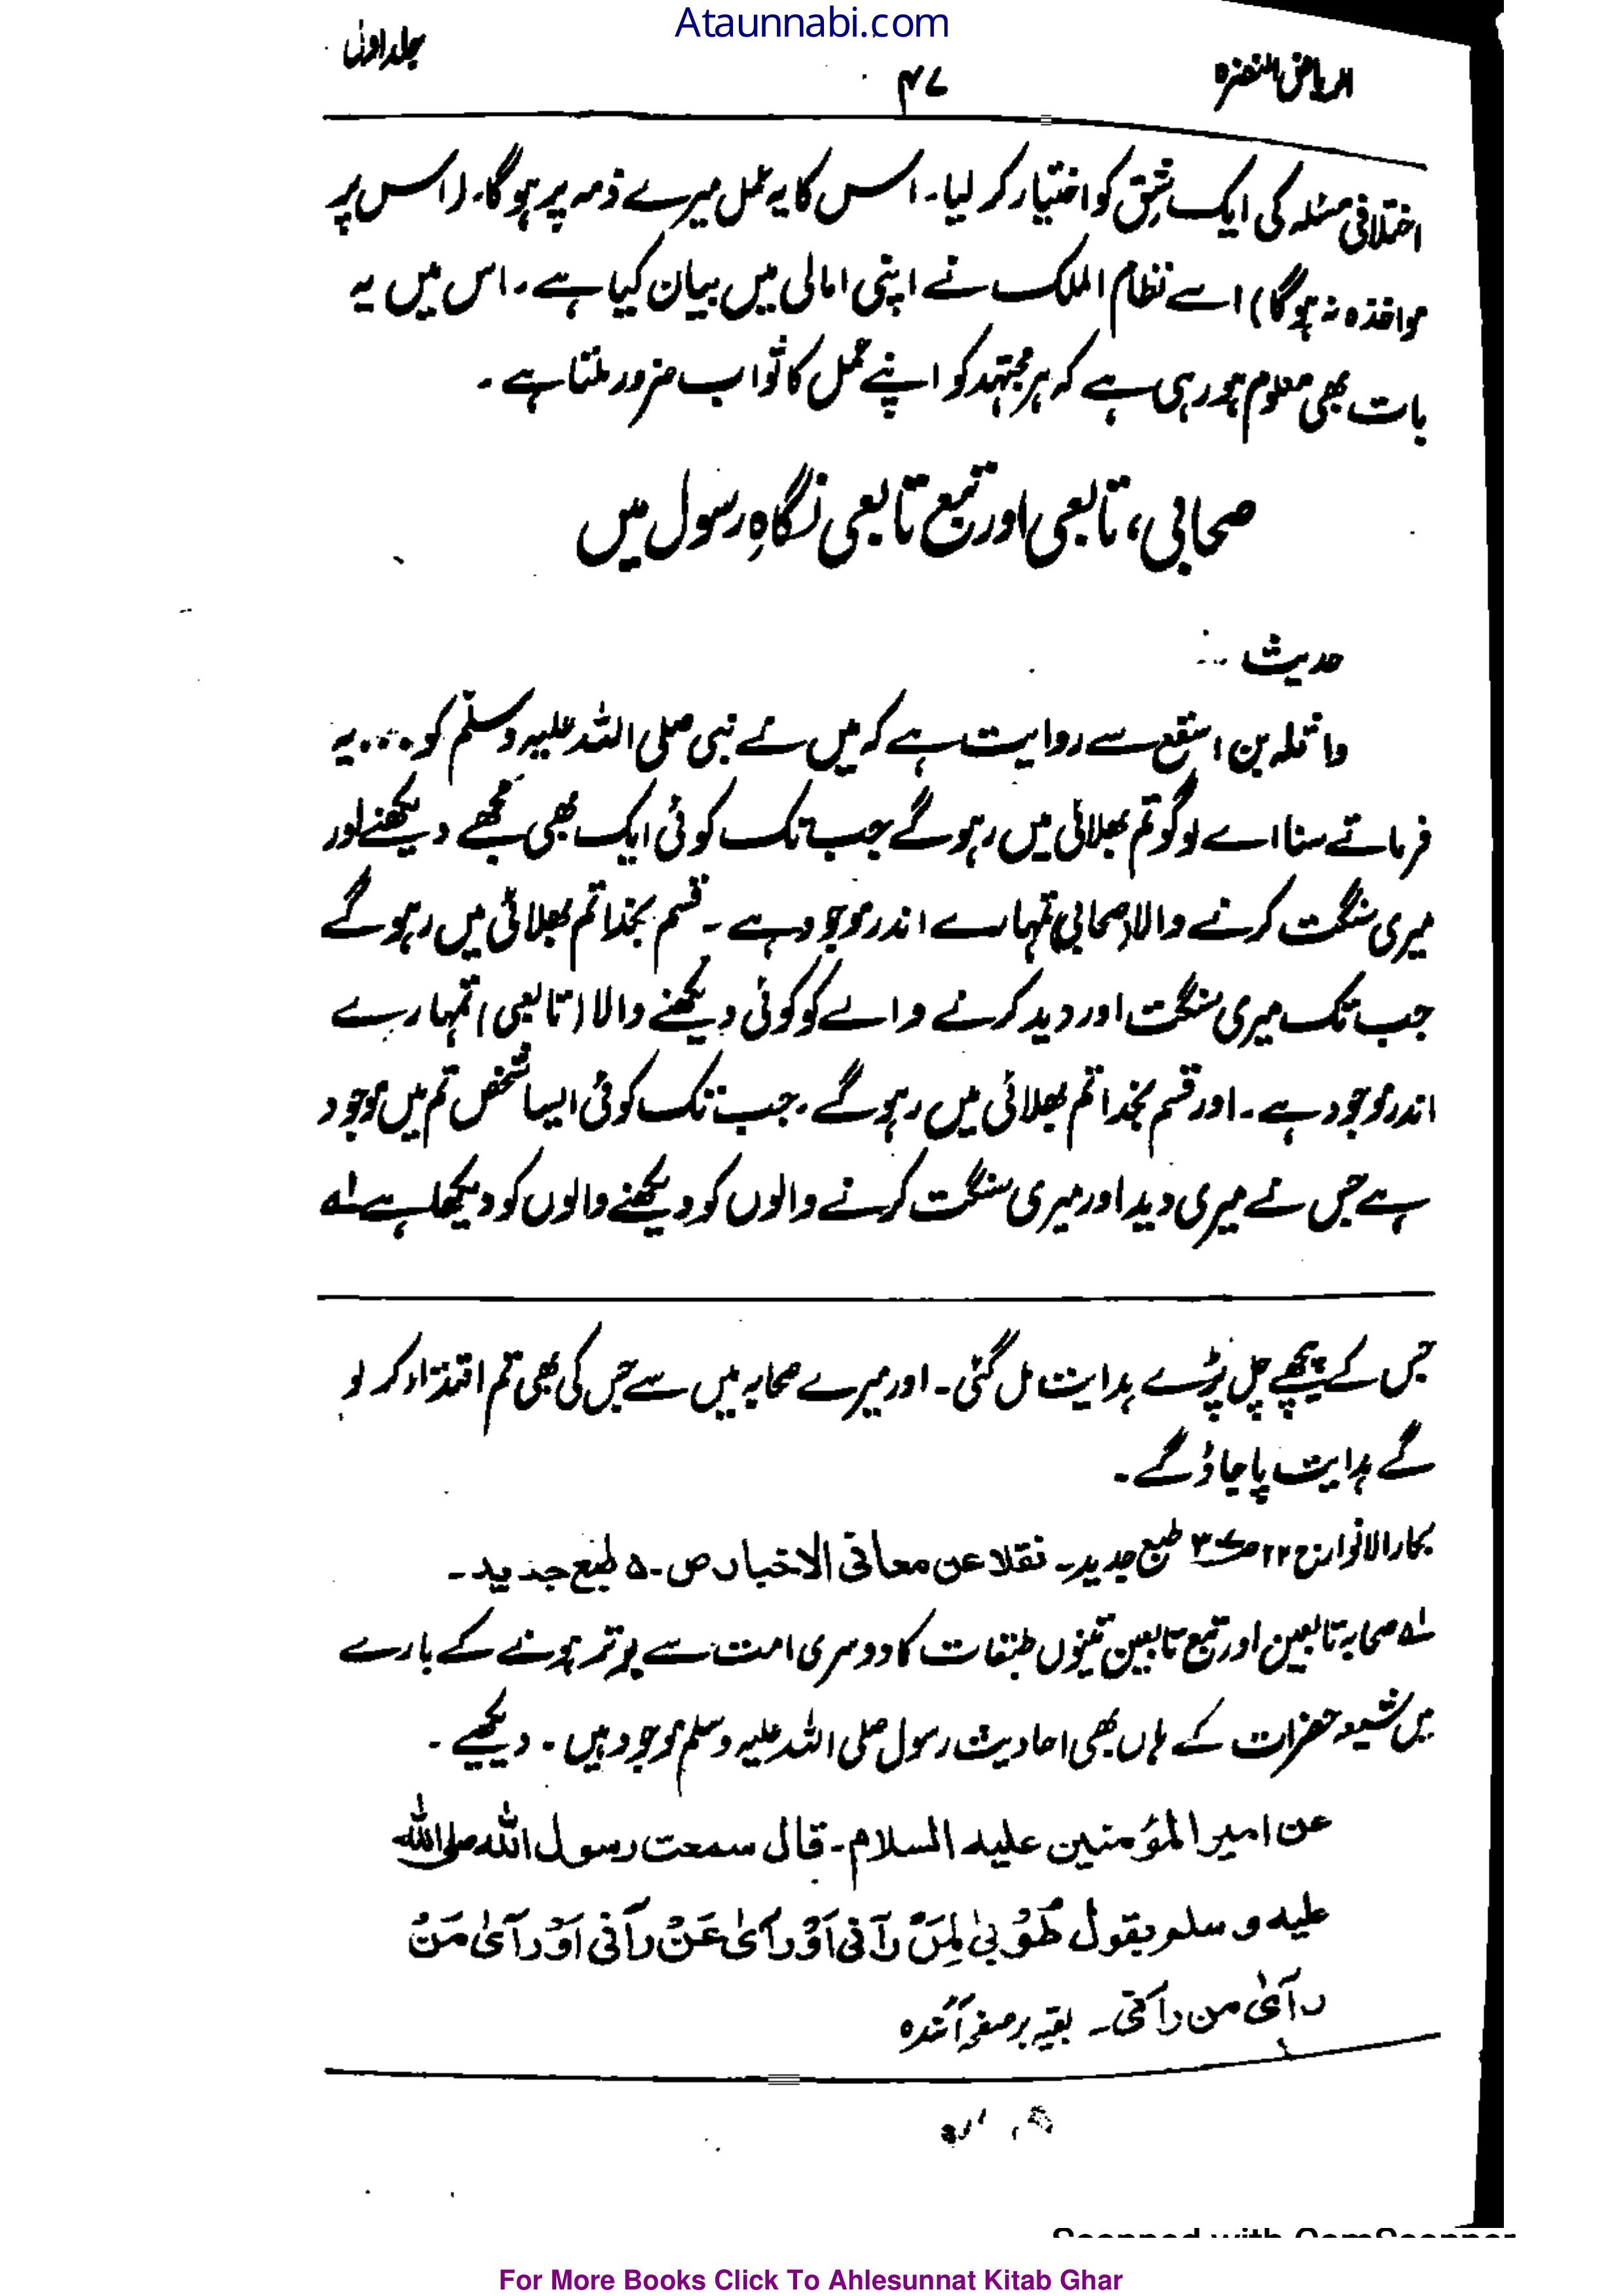 Ataunnabi.com
الریاض النضرہ ۴۷ جلد اول
اختلافی مسئلہ کی ایک شِق کو اختیار کر لیا۔ اس کا یہ عمل میرے ذمہ پر ہو گا۔ (اس پر
مواخذہ نہ ہو گا) اسے نظام الملک نے اپنی امالی میں بیان کیا ہے۔ اس میں یہ
بات بھی معلوم ہو رہی ہے کہ ہر مجتہد کو اپنے عمل کا ثواب ضرور ملتا ہے۔
صحابی، تابعی اور تبع تابعی نگاہِ رسول میں
حدیث :۔
واثلہ بن اسقع سے روایت ہے کہ میں نے نبی صلی اللہ علیہ وسلم کو ... یہ
فرماتے سنا اے لوگو تم بھلائی میں رہو گے جب تک کوئی ایک بھی مجھے دیکھنے اور
میری سنگت کرنے والا (صحابی تمہارے اندر موجود ہے۔ قسم بخدا تم بھلائی میں رہو گے
جب تک میری سنگت اور دید کرنے والے کو کوئی دیکھنے والا (تابعی) تمہارے
اندر موجود ہے۔ اور قسم بخدا تم بھلائی میں رہو گے۔ جب تک کوئی ایسا شخص تم میں موجود
ہے جس نے میری دید اور میری سنگت کرنے والوں کو دیکھنے والوں کو دیکھا ہے لہ
جس کے پیچھے چل پڑے ہدایت مل گئی۔ اور میرے صحابہ میں سے جس کی بھی تم اقتداء کر لو
گے ہدایت پا جاؤ گے۔
بحار الانوار ج ۲۲ ص ۳۰۷ طبع جدید۔ نقلا عن معانی الاخبار ص۔ ۵ طبع جدید۔
لہ صحابہ تابعین اور تبع تابعین تینوں طبقات کا دوسری امت سے برتر ہونے کے بارے
میں شیعہ حضرات کے ہاں بھی احادیث رسول صلی اللہ علیہ وسلم موجود ہیں۔ دیکھیے۔
عن امیر المؤمنین علیہ السلام۔ قال سمعت رسول اللہ صلی اللہ
علیہ و سلم یقول طُوْبیٰ لِمَنْ رَآنی اَوْ رَایٰ مَنْ رَآنی اَوْ رَآیٰ مَنْ
رآیٰ من رآنی۔ بقیہ بر صفحہ آئندہ
Scanned with CamScanner
For More Books Click To Ahlesunnat Kitab Ghar